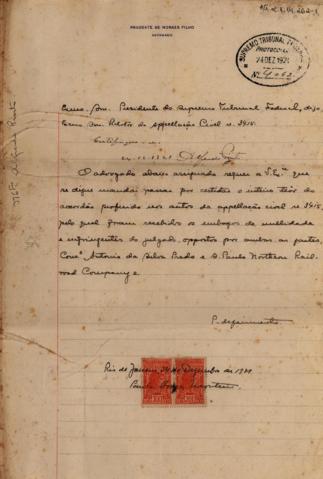 PRUDENTE DE MORAES FILHO
ADVOGADO
SUPREMO TRIBUNAL
PROTOCOLLO
24 DEZ 1921
Nº
Exmo. Snr. Presidente do Supremo Tribunal Federal,
Exmo Snr. Relator da appellação Civel n. 3415.
Certifique-se.
O advogado abaixo assignado requer a V. Exª. que
se digne mandar passar por certidão o inteiro theor do
accordão proferido nos autos da appellação civel nº 3415,
pelo qual foram recebidos os embargos de nullidade
e infringentes do julgado, oppostos por ambas as partes,
Consª Antonio da Silva Prado e S. Paulo Northern Rail-
road Company.
P. deferimento
Rio de Janeiro, 24 de Dezembro de